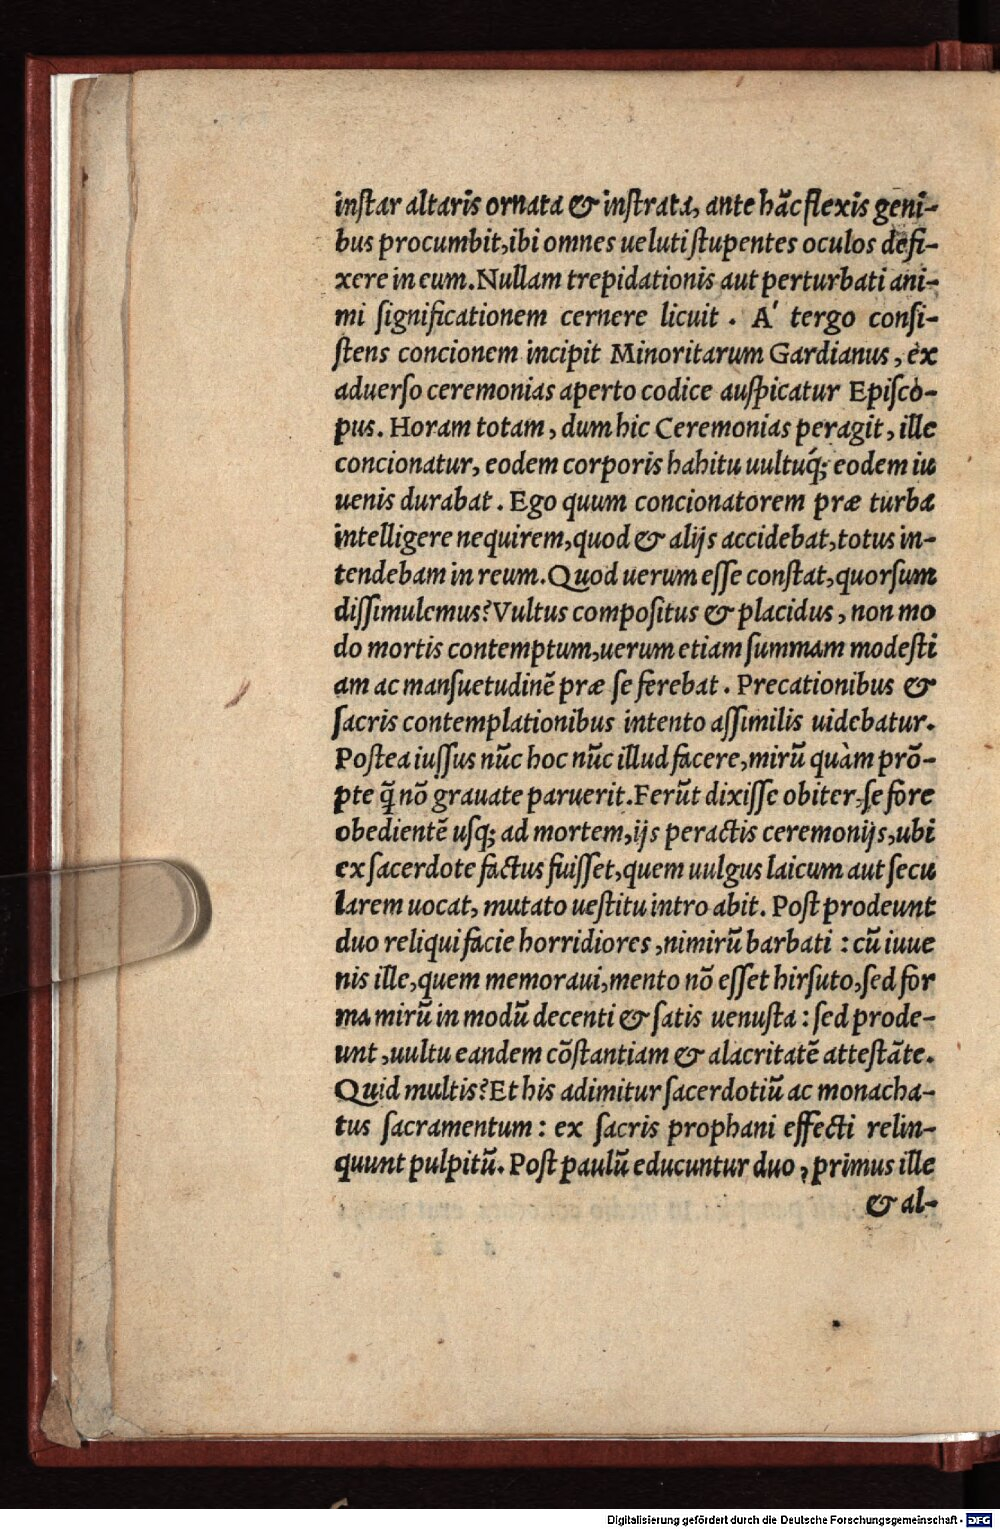 inſtar altaris ornata & inſtrata, ante hãc flexis geni-
bus procumbit, ibi omnes ueluti ſtupentes oculos defi-
xere in eum. Nullam trepidationis aut perturbati ani-
mi ſignificationem cernere licuit. A' tergo conſi-
ſtens concionem incipit Minoritarum Gardianus, ex
aduerſo ceremonias aperto codice auſpicatur Epiſco-
pus. Horam totam, dum hic Ceremonias peragit, ille
concionatur, eodem corporis habitu uultuq́; eodem iu
uenis durabat. Ego quum concionatorem præ turba
intelligere nequirem, quod & alijs accidebat, totus in-
tendebam in reum. Quod uerum eſſe conſtat, quorſum
diſſimulemus? Vultus compoſitus & placidus, non mo
do mortis contemptum, uerum etiam ſummam modeſti
am ac manſuetudinẽ præ ſe ferebat. Precationibus &
ſacris contemplationibus intento aſſimilis uidebatur.
Poſtea iuſſus nũc hoc nũc illud facere, mirũ quàm prõ-
pte q̃ nõ grauate paruerit. Ferũt dixiſſe obiter, ſe fore
obedientẽ uſq; ad mortem, ijs peractis ceremonijs, ubi
ex ſacerdote factus fuiſſet, quem uulgus laicum aut ſecu
larem uocat, mutato ueſtitu intro abit. Poſt prodeunt
duo reliqui facie horridiores, nimirũ barbati : cũ iuue
nis ille, quem memoraui, mento nõ eſſet hirſuto, ſed for
ma mirũ in modũ decenti & ſatis uenuſta : ſed prode-
unt, uultu eandem cõſtantiam & alacritatẽ atteſtãte.
Quid multis? Et his adimitur ſacerdotiũ ac monacha-
tus ſacramentum : ex ſacris prophani effecti relin-
quunt pulpitũ. Poſt paulũ educuntur duo, primus ille
& al-
Digitalisierung gefördert durch die Deutsche Forschungsgemeinschaft - DFG